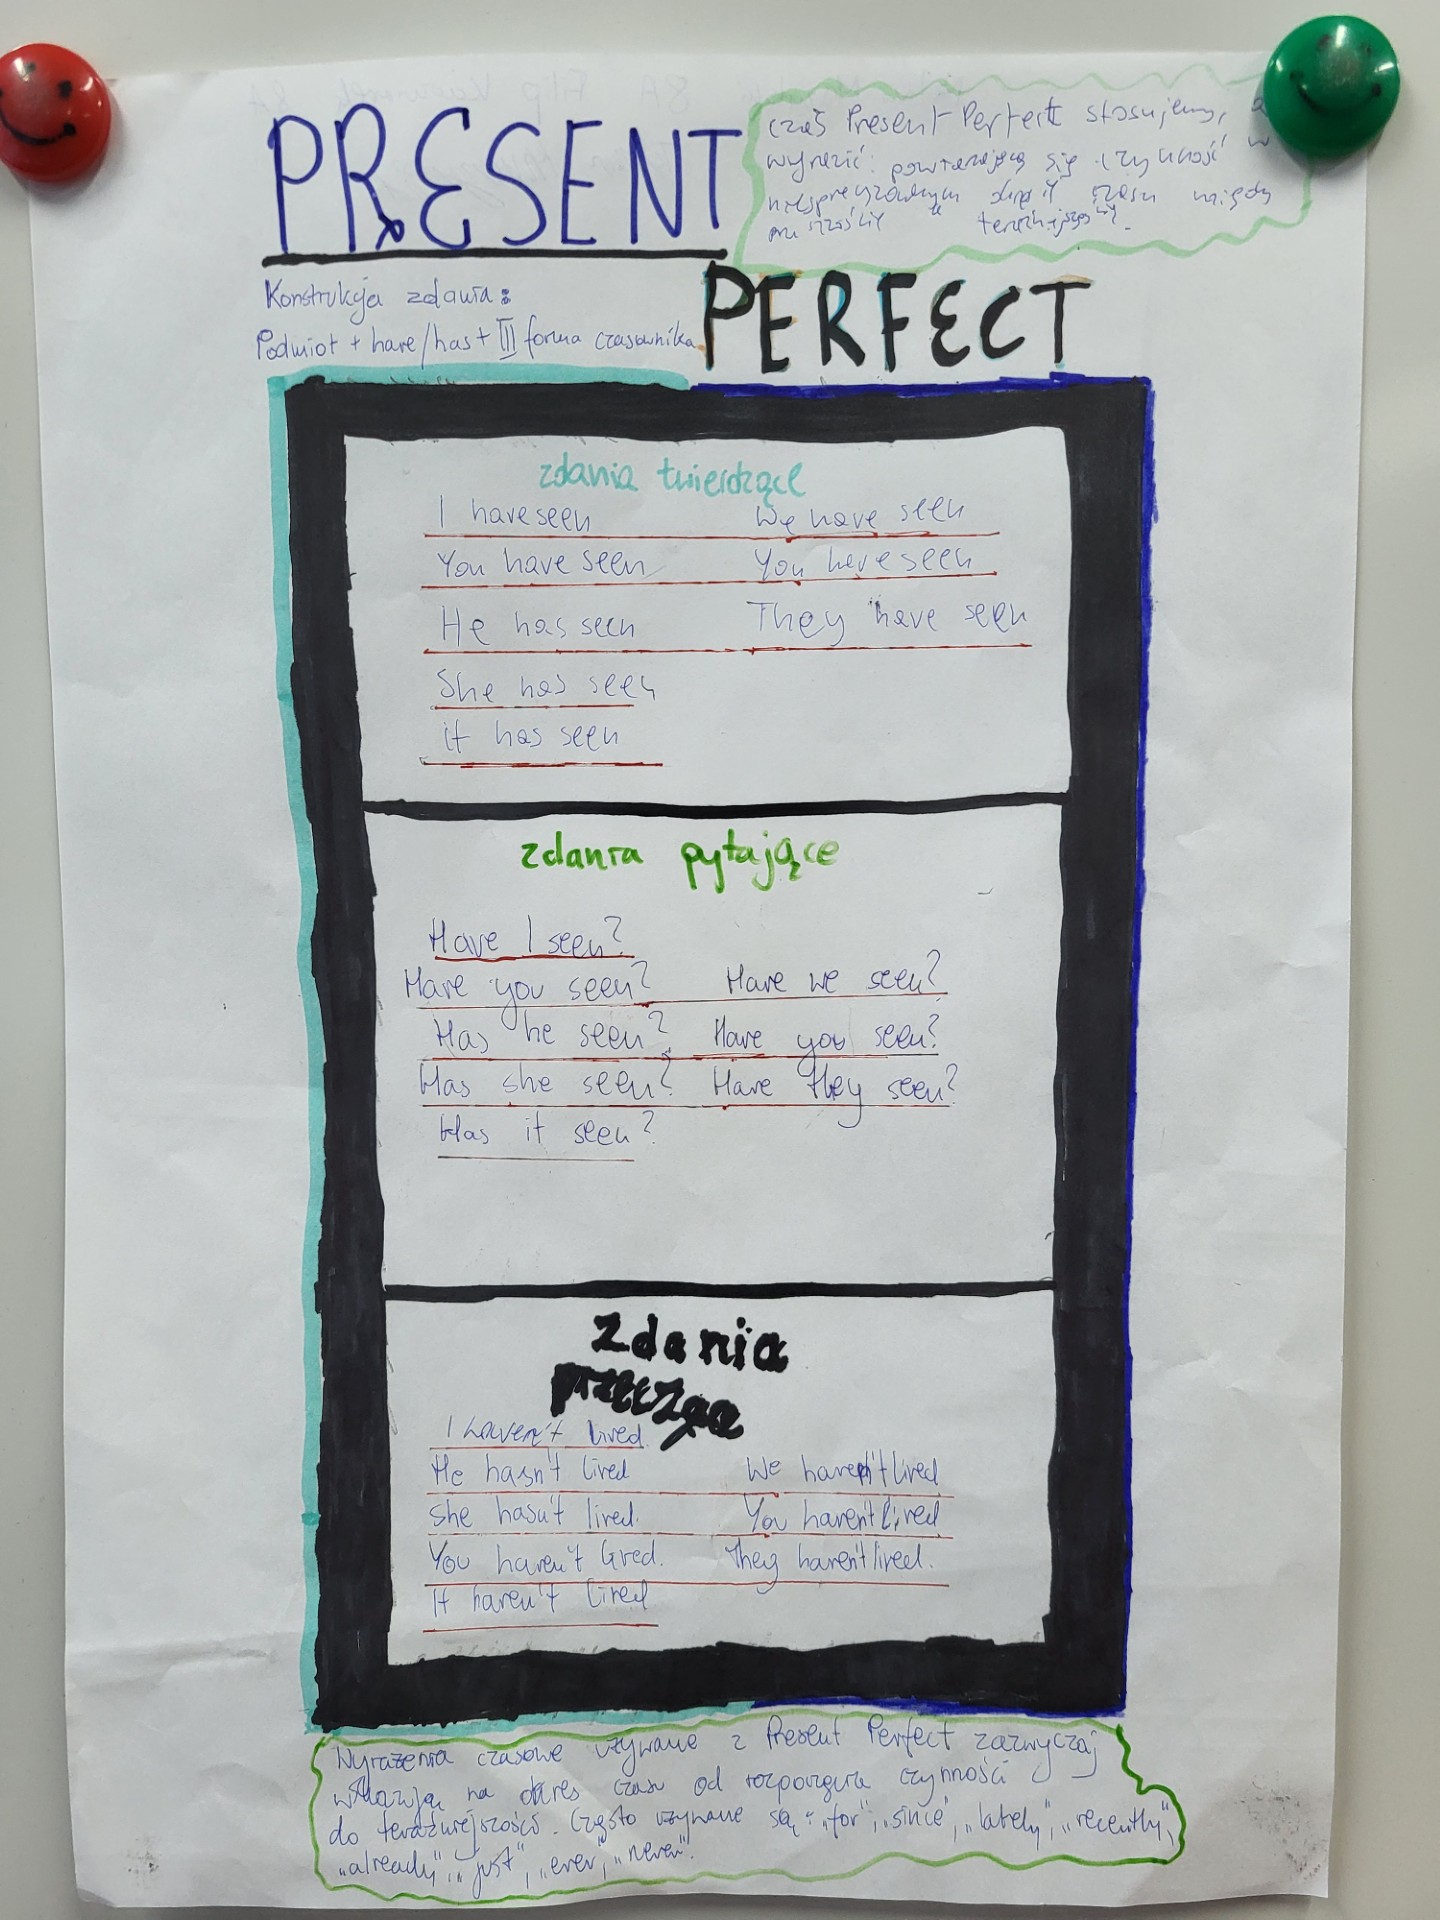 PRESENT
czas Present Perfect stosujemy, a
wyrazić: powtarzającą się czynność w
niesprecyzowanym czasu między
przeszością a teraźniejszością.
PERFECT
Konstrukcja zdania:
Podmiot + have/has + III forma czasownika
zdania twierdzące
I have seen We have seen
You have seen You have seen
He has seen They have seen
She has seen
it has seen
zdania pytające
Have I seen?
Have you seen? Have we seen?
Has he seen? Have you seen?
Has she seen? Have they seen?
Has it seen?
Zdania
przeczące
I haven't lived
He hasn't lived We haven't lived
She hasn't lived. You haven't lived
You haven't lived. They haven't lived.
It haven't lived
Wyrażenia czasowe używane z Present Perfect zazwyczaj
wskazują na okres czasu od rozpoczęcia czynności
do teraźniejszości. Często używane są: „for", „since", „lately", „recently",
„already", „just", „ever, „never".